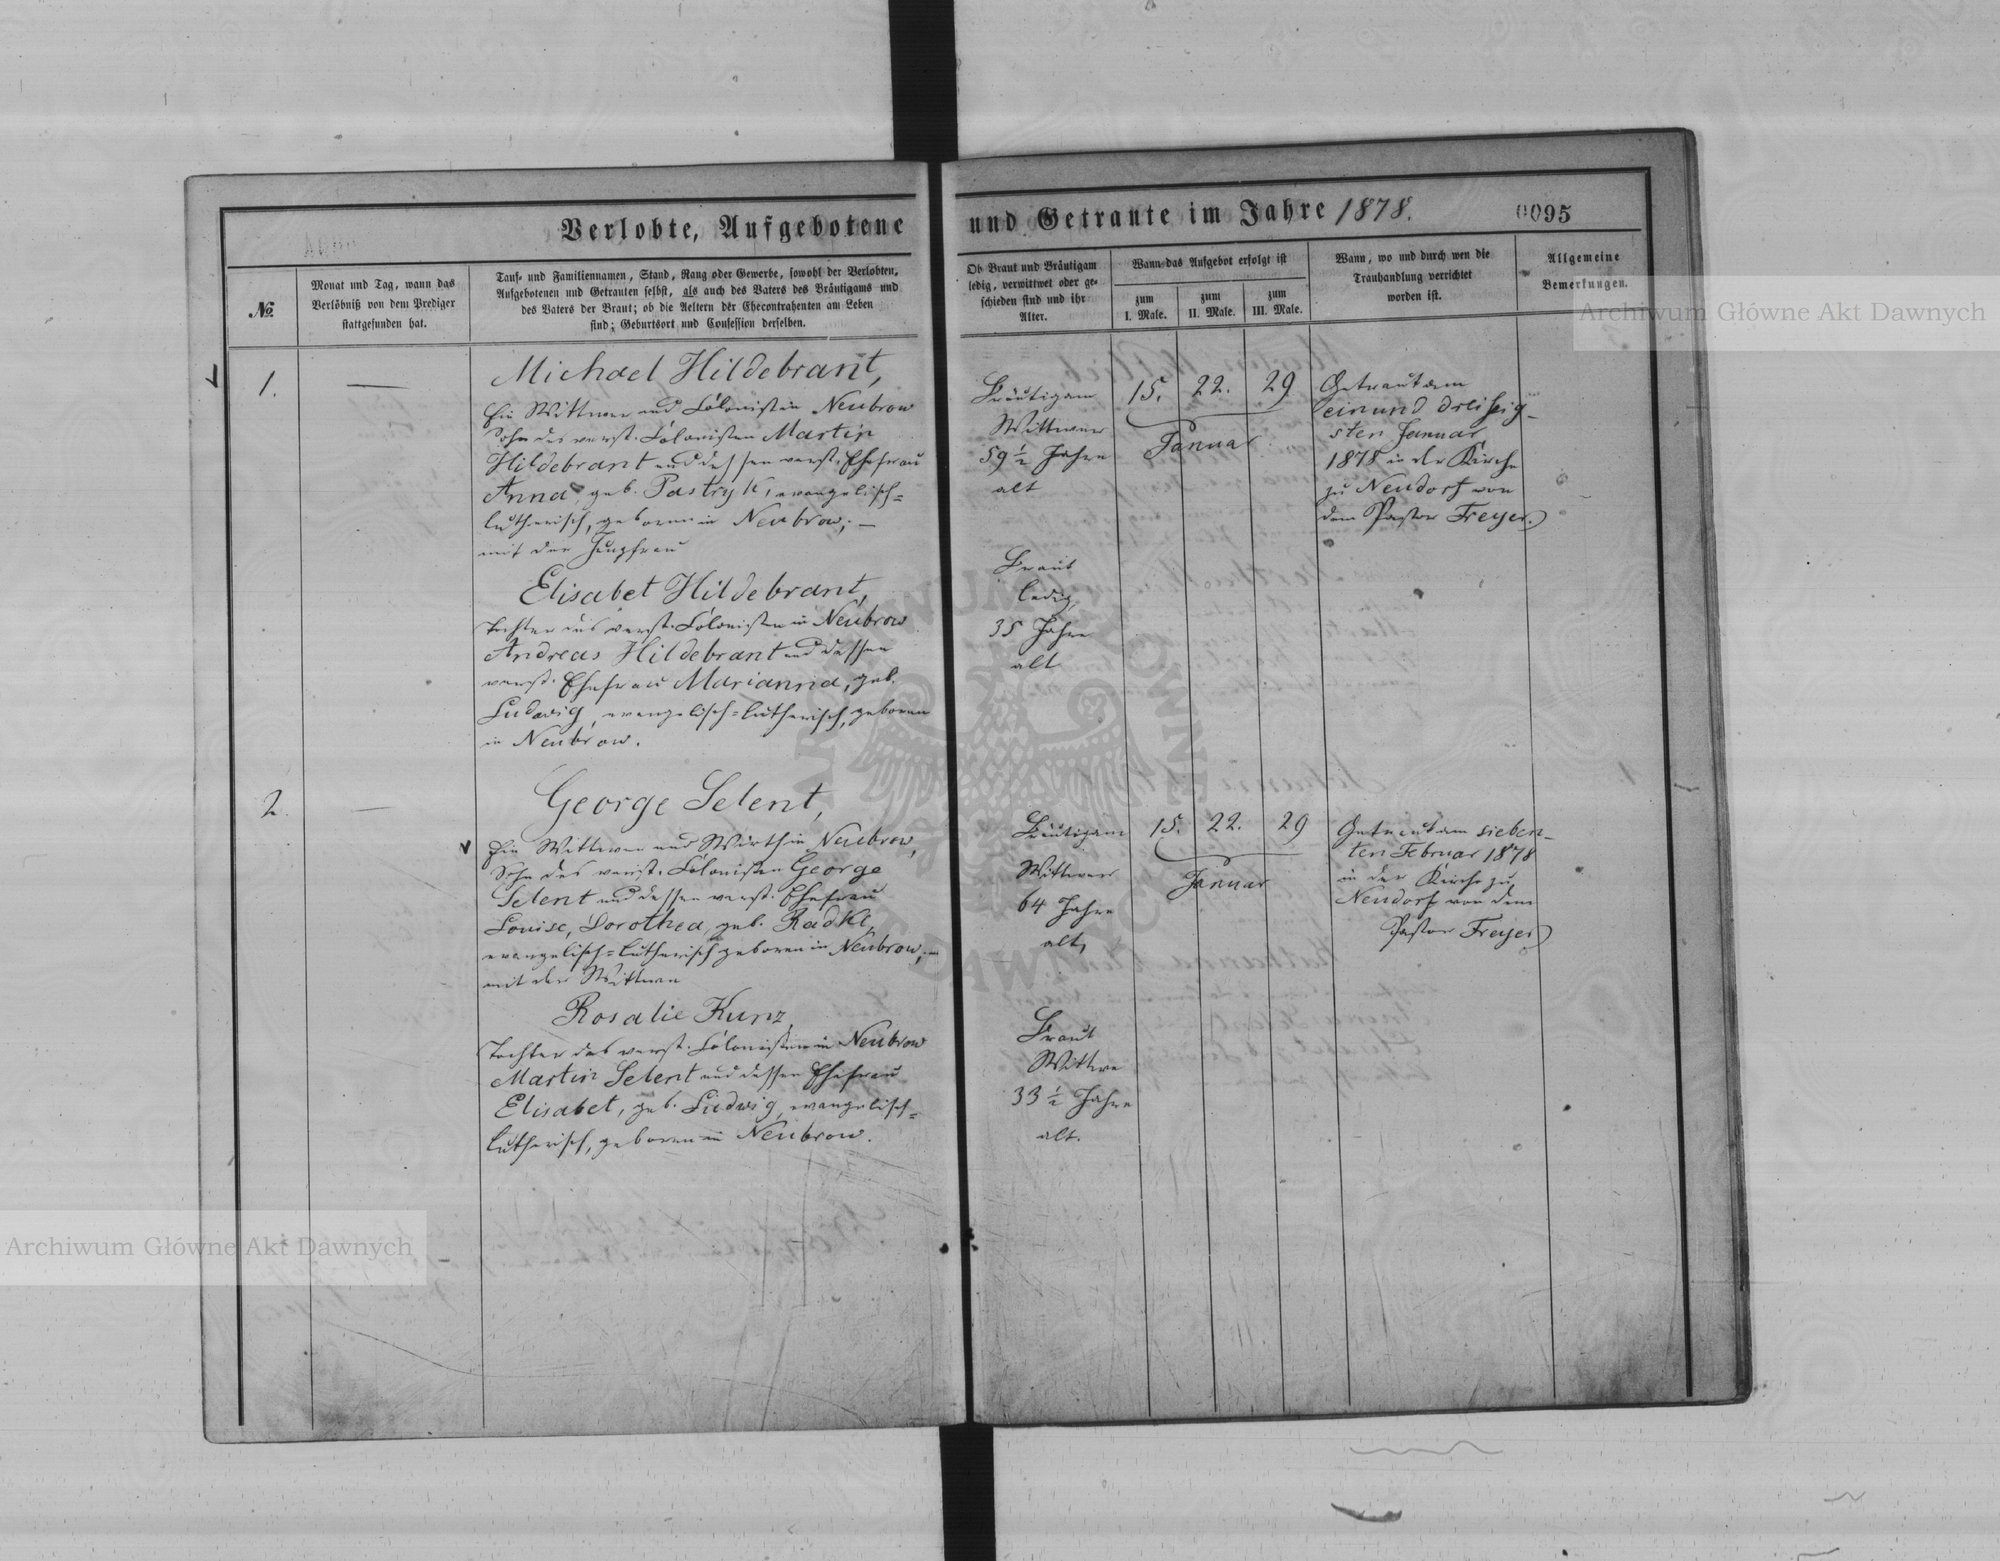 Verlobte, Aufgebotene und Getraute im Jahre 1878.
0095
№.
Monat und Tag, wann das
Verlöbniß von dem Prediger
stattgefunden hat.
Tauf- und Familiennamen, Stand, Rang oder Gewerbe, sowohl der Verlobten,
Aufgebotenen und Getrauten selbst, als auch des Vaters des Bräutigams und
des Vaters der Braut; ob die Aeltern der Ehecontrahenten am Leben
sind; Geburtsort und Confession derselben.
Ob Braut und Bräutigam
ledig, verwittwet oder ge-
schieden sind und ihr
Alter.
Wann das Aufgebot erfolgt ist
zum
I. Male.
zum
II. Male.
zum
III. Male.
Wann, wo und durch wen die
Trauhandlung verrichtet
worden ist.
Allgemeine
Bemerkungen.
Archiwum Główne Akt Dawnych
1.
—
Michael Hildebrant,
Ein Wittwer und Colonist in Neubrow
Sohn des verst. Colonisten Martin
Hildebrant und dessen verst. Ehefrau
Anna, geb. Pastryk, evangelisch=
lutherisch, geboren in Neubrow; —
mit der Jungfrau
Elisabet Hildebrant,
Tochter des verst. Colonisten in Neubrow
Andreas Hildebrant und dessen
verst. Ehefrau Marianna, geb.
Ludwig, evangelisch=lutherisch, geboren
in Neubrow.
Bräutigam
Wittwer
59 ½ Jahre
alt
Braut
ledig,
35 Jahre
alt
15. 22. 29
Januar
Getraut am
einund dreißig-
sten Januar
1878 in der Kirche
zu Neudorf von
dem Pastor Freyer.
2.
—
George Selent,
Ein Wittwer und Wirth in Neubrow,
Sohn des verst. Colonisten George
Selent und dessen verst. Ehefrau
Louise, Dorothea, geb. Radke,
evangelisch=lutherisch geboren in Neubrow; —
mit der Wittwe
Rosalie Kunz,
Tochter des verst. Colonisten in Neubrow
Martin Selent und dessen Ehefrau
Elisabet, geb. Ludwig, evangelisch=
lutherisch, geboren in Neubrow.
Bräutigam
Wittwer
64 Jahre
alt,
Braut
Wittwe
33 ½ Jahre
alt.
15. 22. 29
Januar
Getraut am sieben-
ten Februar 1878
in der Kirche zu
Neudorf von dem
Pastor Freyer
Archiwum Główne Akt Dawnych